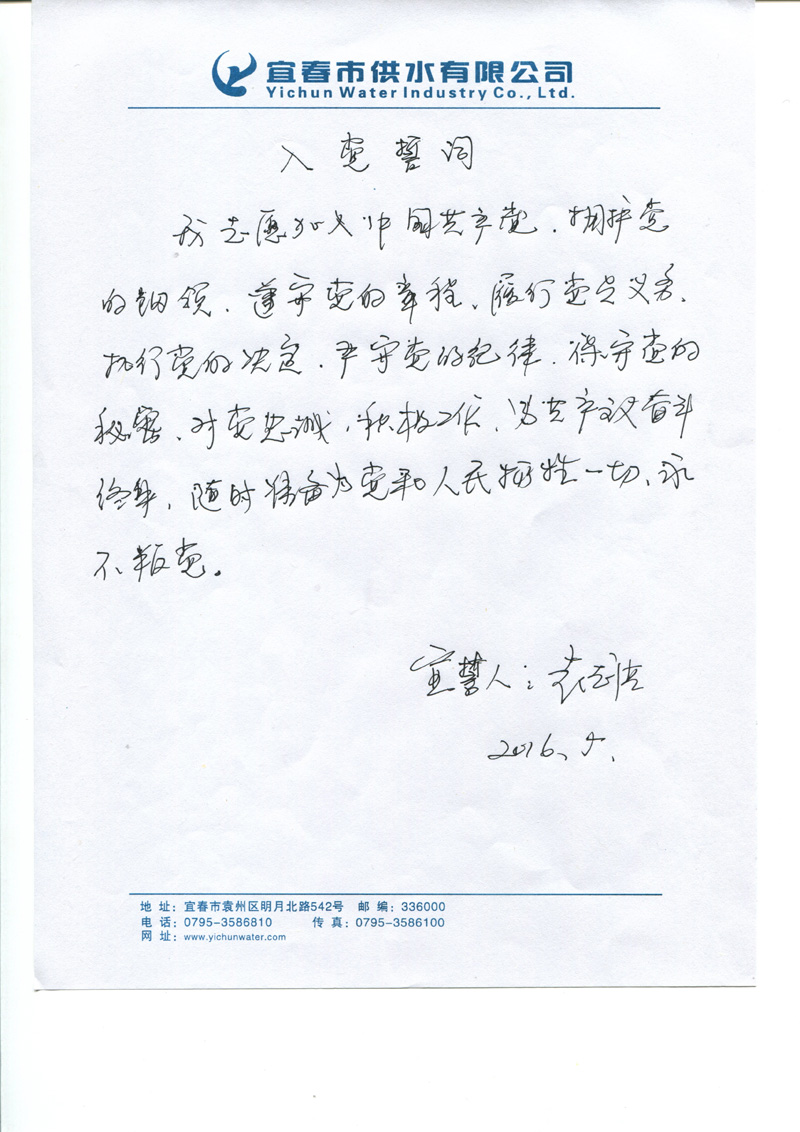 宜春市供水有限公司
Yichun Water Industry Co., Ltd.
入党誓词
我志愿加入中国共产党，拥护党
的纲领，遵守党的章程，履行党员义务，
执行党的决定，严守党的纪律，保守党的
秘密，对党忠诚，积极工作，为共产主义奋斗
终身，随时准备为党和人民牺牲一切，永
不叛党。
宣誓人：袁志浩
2016、5、
地 址：宜春市袁州区明月北路542号 邮 编：336000
电 话：0795-3586810 传 真：0795-3586100
网 址：www.yichunwater.com